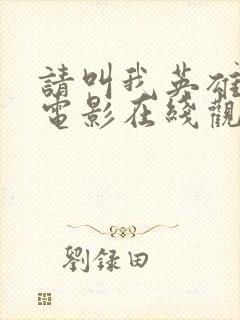 請叫我英雄
電影在綫觀
劉録田